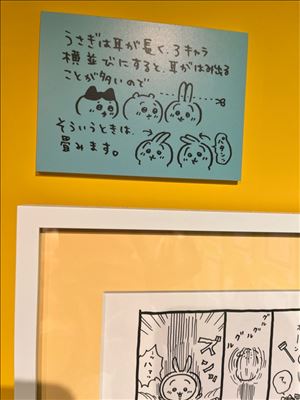 うさぎは耳が長く、3キャラ
横並びにすると、耳がはみ出る
ことが多いので
そういうときは、
畳みます。
パタン
ズンッ
グルグル
グルグル